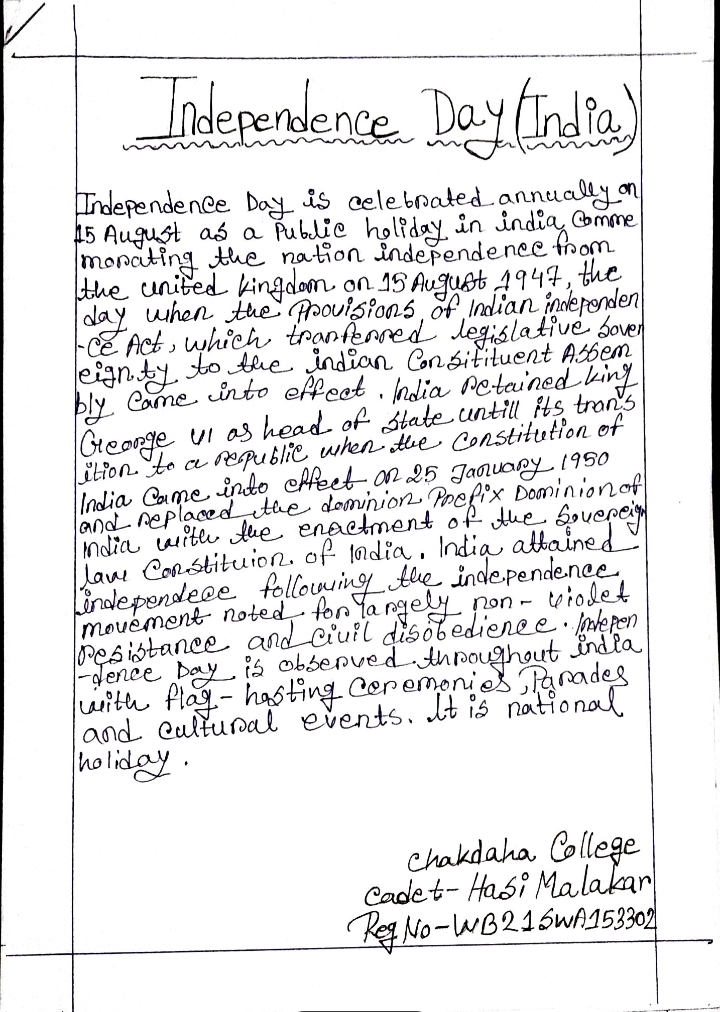 Independence Day (India)
Independence Day is celebrated annually on
15 August as a Public holiday in india, Comme
morating the nation independence from
the united kingdom on 15 August 1947, the
day when the Provisions of Indian independen
-ce Act, which tranferred legislative Sover
eignty to the indian Consitituent Assem
bly Came into effect. India retained king
George VI as head of State untill its trans
ition to a republic when the Constitution of
India Came into effect on 25 January 1950
and replaced the dominion Prefix Dominion of
India with the enactment of the Sovereign
law Constituion of India. India attained
independece following the independence
movement noted for largely non-violet
resistance and Civil disobedience. Indepen
-dence Day is observed throughout india
with flag-hosting Ceremonies, Parades
and cultural events. It is national
holiday.
Chakdaha College
Cadet- Hasi Malakar
Reg No-WB21SWA153302